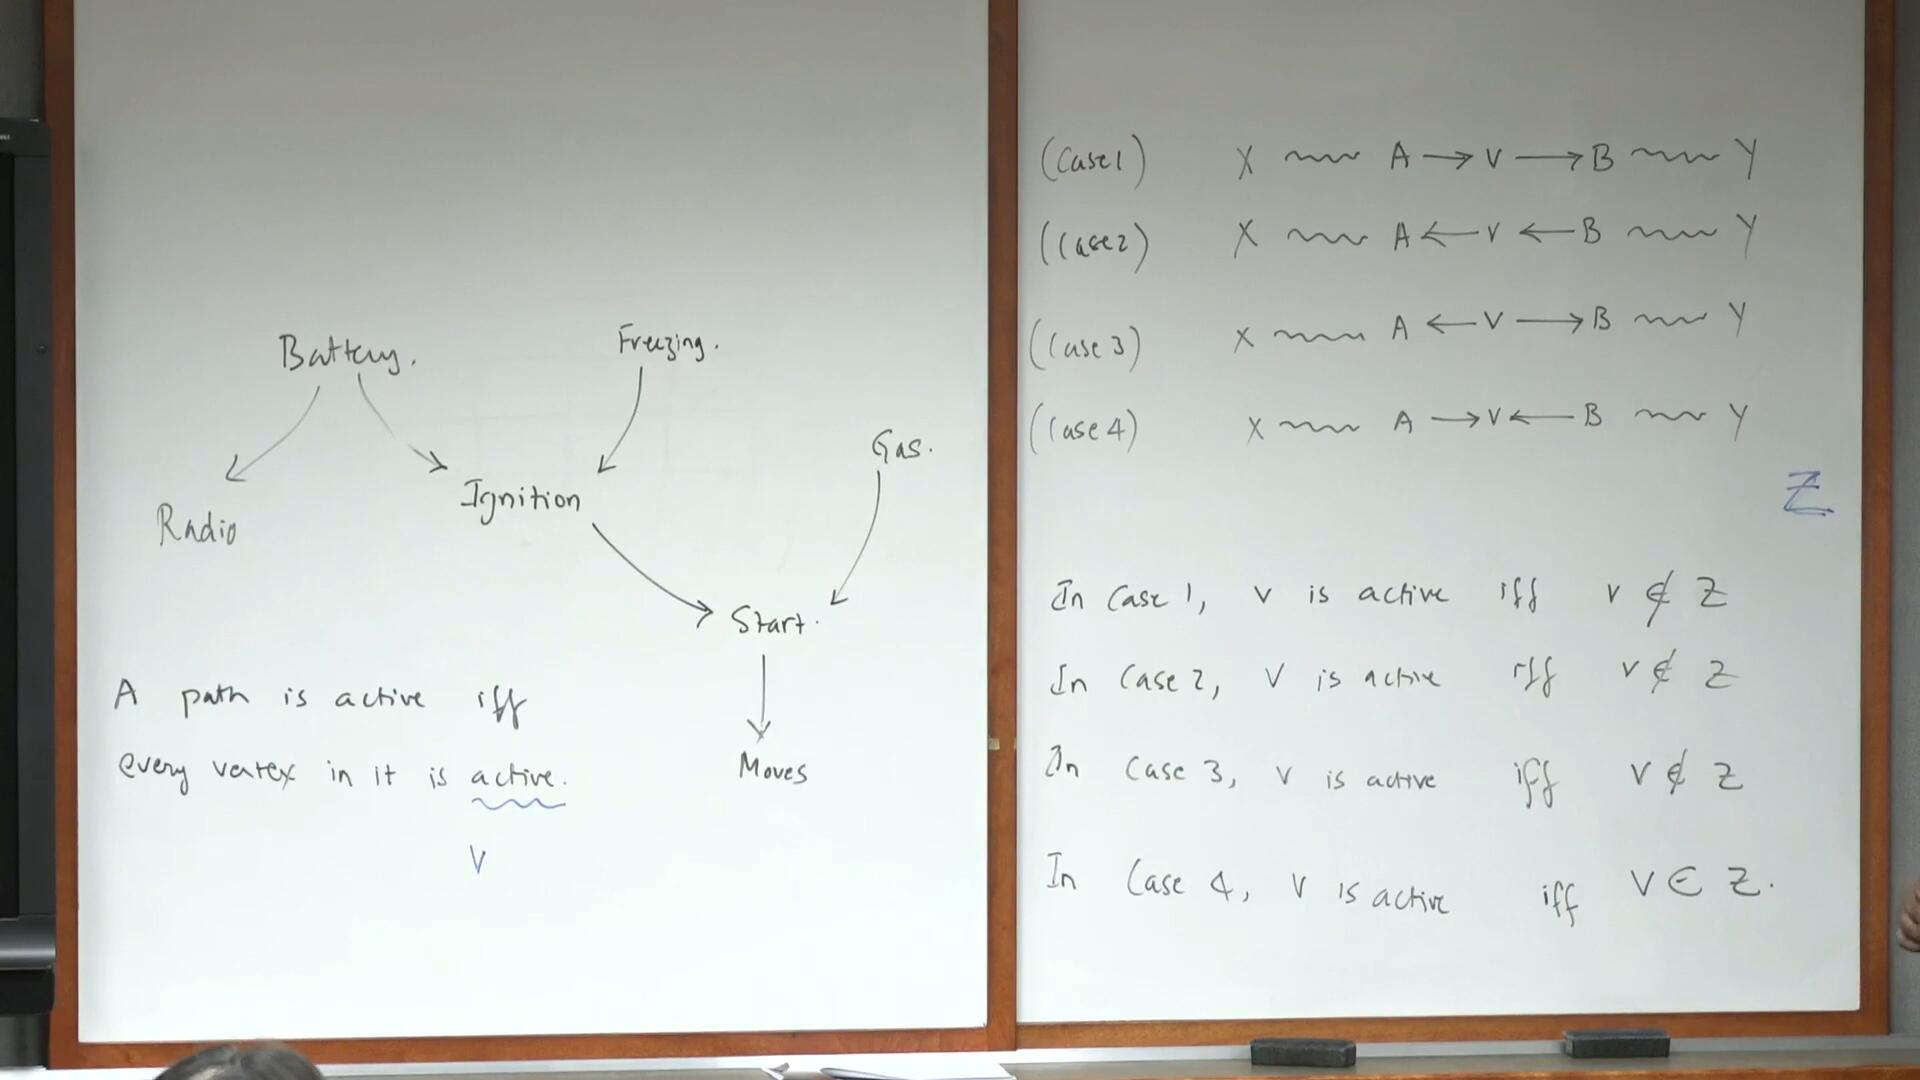 Battery.
Freezing.
Gas.
Ignition
Radio
Start.
Moves
A path is active iff
every vertex in it is active.
V
(Case 1) X A → V → B Y
(Case 2) X A ← V ← B Y
(Case 3) X A ← V → B Y
(Case 4) X A → V ← B Y
Z
In Case 1, V is active iff V ∉ Z
In Case 2, V is active iff V ∉ Z
In Case 3, V is active iff V ∉ Z
In Case 4, V is active iff V ∈ Z.